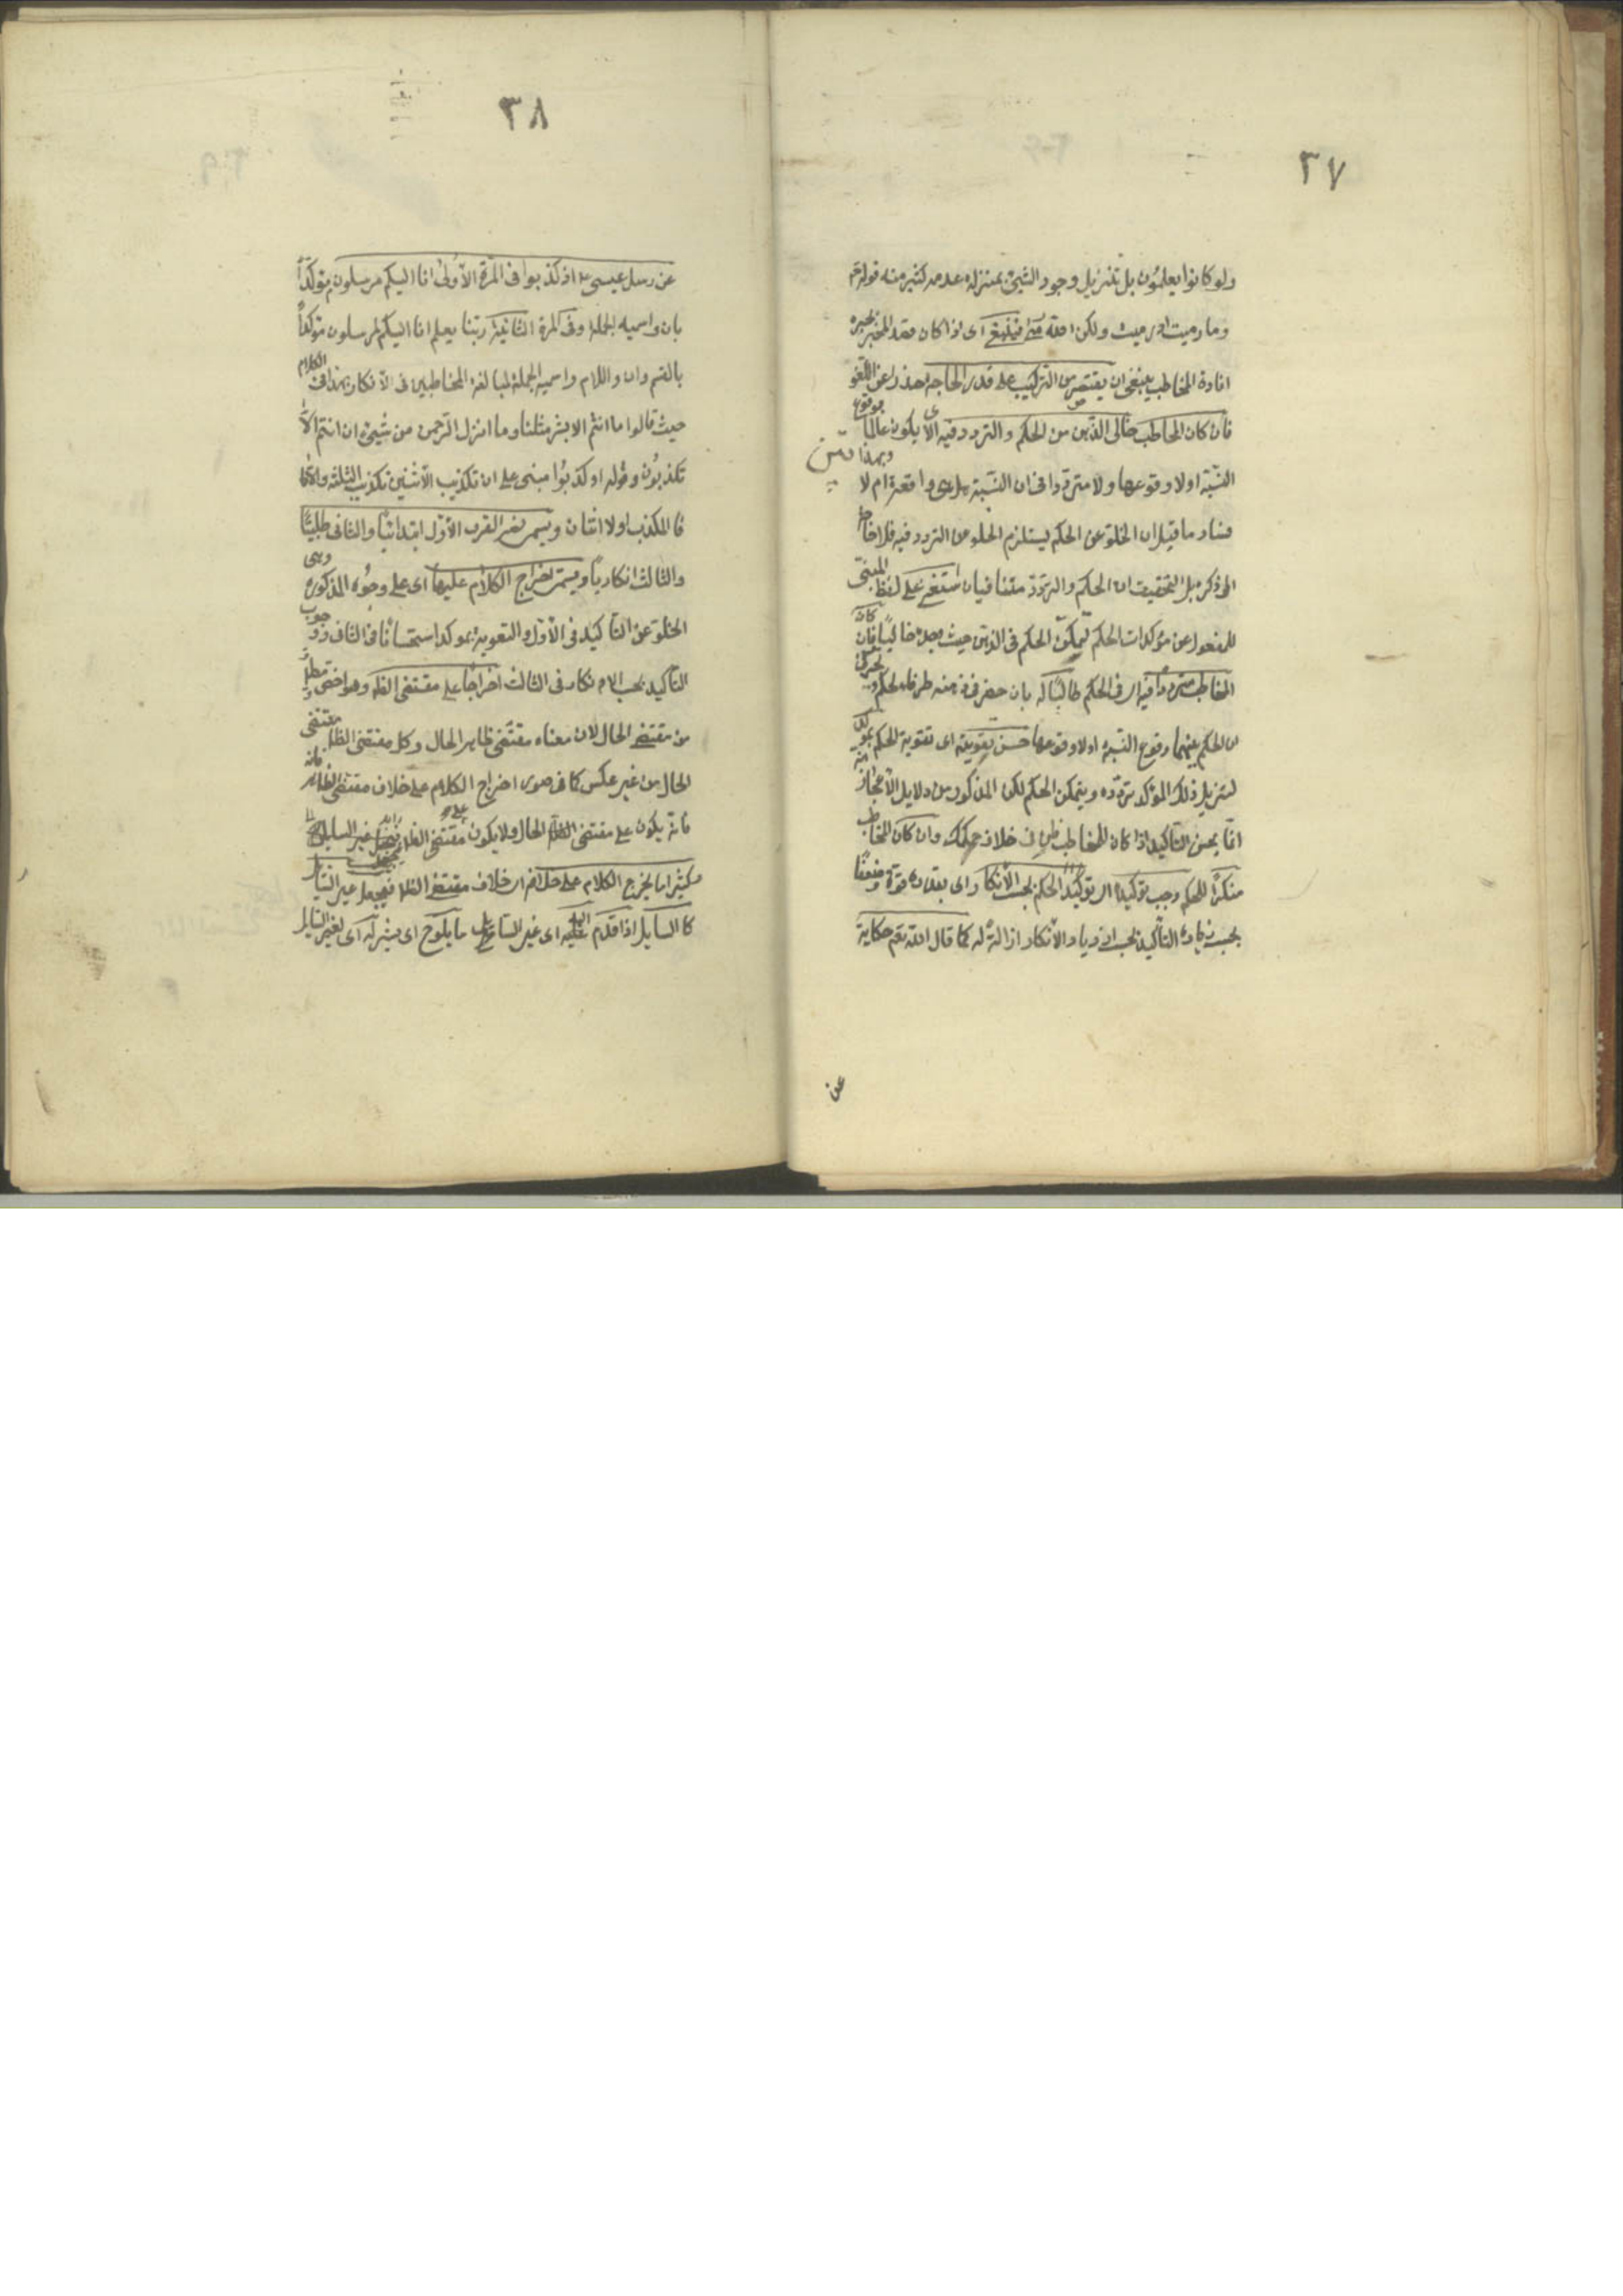 ٣٧
ولو كانوا يعلمون بل تنزيل وجود الشيء بمنزلة عدمه كثير منه قوله تع
وما رميت اذ رميت ولكن الله رمى فينبغى اى اذا كان قصد المخبر بخبره
افادة المخاطب ينبغى ان يقتصر من التركيب على قدر الحاجة حذرا عن اللغو
فان كان المخاطب خالى الذهن من الحكم والتردد فيه اى لا يكون عالما بوقوع
النسبة اولا وقوعها ولا مترددا فى ان النسبة هل هى واقعة ام لا وبهذا تبين
فساد ما قيل ان الخلو عن الحكم يستلزم الخلو من التردد فيه فلا حاجة
الى ذكره بل التحقيق ان الحكم والتردد متنافيان استغنى على لفظ المبنى
للمفعول عن مؤكدات الحكم لتمكن الحكم فى الذهن حيث وجده خاليا فان كان
المخاطب مترددا فيه اى فى الحكم طالبا له بان حضر فى ذهنه طرفا الحكم وتحير فى
ان الحكم بينهما وقوع النسبة اولا وقوعها حسن تقويته اى تقوية الحكم بمؤكد
ليزيل ذلك المؤكد تردده ويتمكن الحكم لكن المذكور من دلايل الاعجاز انه
انما يحسن التاكيد اذا كان للمخاطب ظن فى خلاف حكمك وان كان المخاطب
منكرا للحكم وجب توكيده اى توكيد الحكم بحسب الانكار اى بقدره قوة وضعفا
بحسب زيادة التاكيد بحسب ازدياد الانكار ازالة له كما قال الله تع حكاية
عن
٣٨
عن رسل عيسى ع اذ كذبوا فى المرة الاولى انا اليكم مرسلون مؤكدا
بان واسمية الجملة وفى المرة الثانية ربنا يعلم انا اليكم لمرسلون مؤكدا
بالقسم وان واللام واسمية الجملة لمبالغة المخاطبين فى الانكار بهذا فى الكلام
حيث قالوا ما انتم الا بشر مثلنا وما انزل الرحمن من شيء ان انتم الا
تكذبون وقوله اذ كذبوا مبنى على ان تكذيب الاثنين تكذيب الثلثة والا
فالمكذب اولا اثنان ويسمى الضرب الاول ابتدائيا والثانى طلبيا
والثالث انكاريا ويسمى اخراج الكلام عليها اى على وجوه المذكورة وهى
الخلو عن التاكيد فى الاول والتقوية بمؤكد استحسانا فى الثانى ووجوب
التاكيد بحسب الانكار فى الثالث اخراجا على مقتضى الظاهر وهو اخص مطلقا
من مقتضى الحال لان معناه مقتضى ظاهر الحال وكل مقتضى الظاهر مقتضى
الحال من غير عكس كما فى صور اخراج الكلام على خلاف مقتضى الظاهر فانه
فانه يكون على مقتضى الحال ولا يكون على مقتضى الظاهر
وكثيرا ما يخرج الكلام على خلافه اى خلاف مقتضى الظاهر فيجعل غير السايل
كالسايل اذا قدم اليه اى غير السايل ما يلوح اى يشير له اى لغير السايل